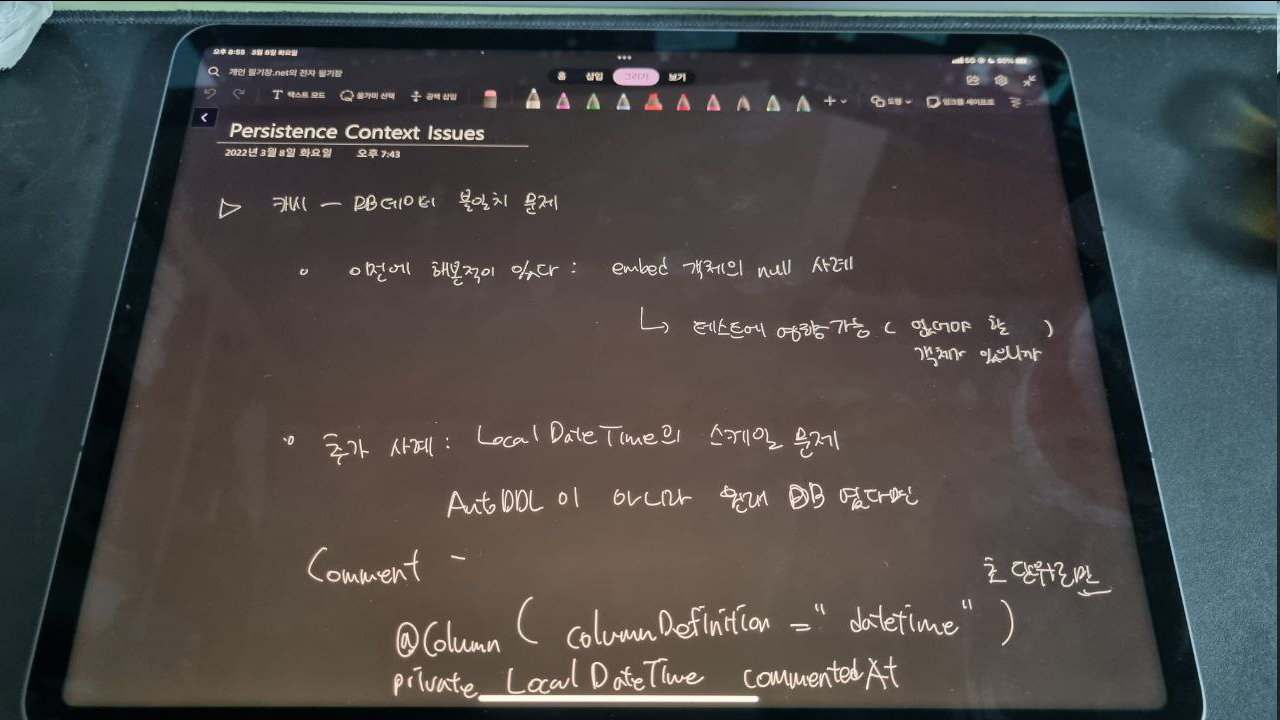 오후 8:55 3월 8일 화요일
5G 60%
개인 필기장.net의 전자 필기장
홈 삽입 그리기 보기
텍스트 모드 올가미 선택 공백 삽입 도형 잉크를 셰이프로
Persistence Context Issues
2022년 3월 8일 화요일 오후 7:43
캐시 — DB데이터 불일치 문제
이전에 해본적이 있다 : embed 객체의 null 사례
테스트에 영향가능 ( 있어야 할 )
객체가 있으니까
추가 사례 : LocalDateTime의 스케일 문제
AutoDDL이 아니라 원래 DB 였다면
Comment -
초 단위로만
@Column ( columnDefinition = "datetime" )
private LocalDateTime commentedAt